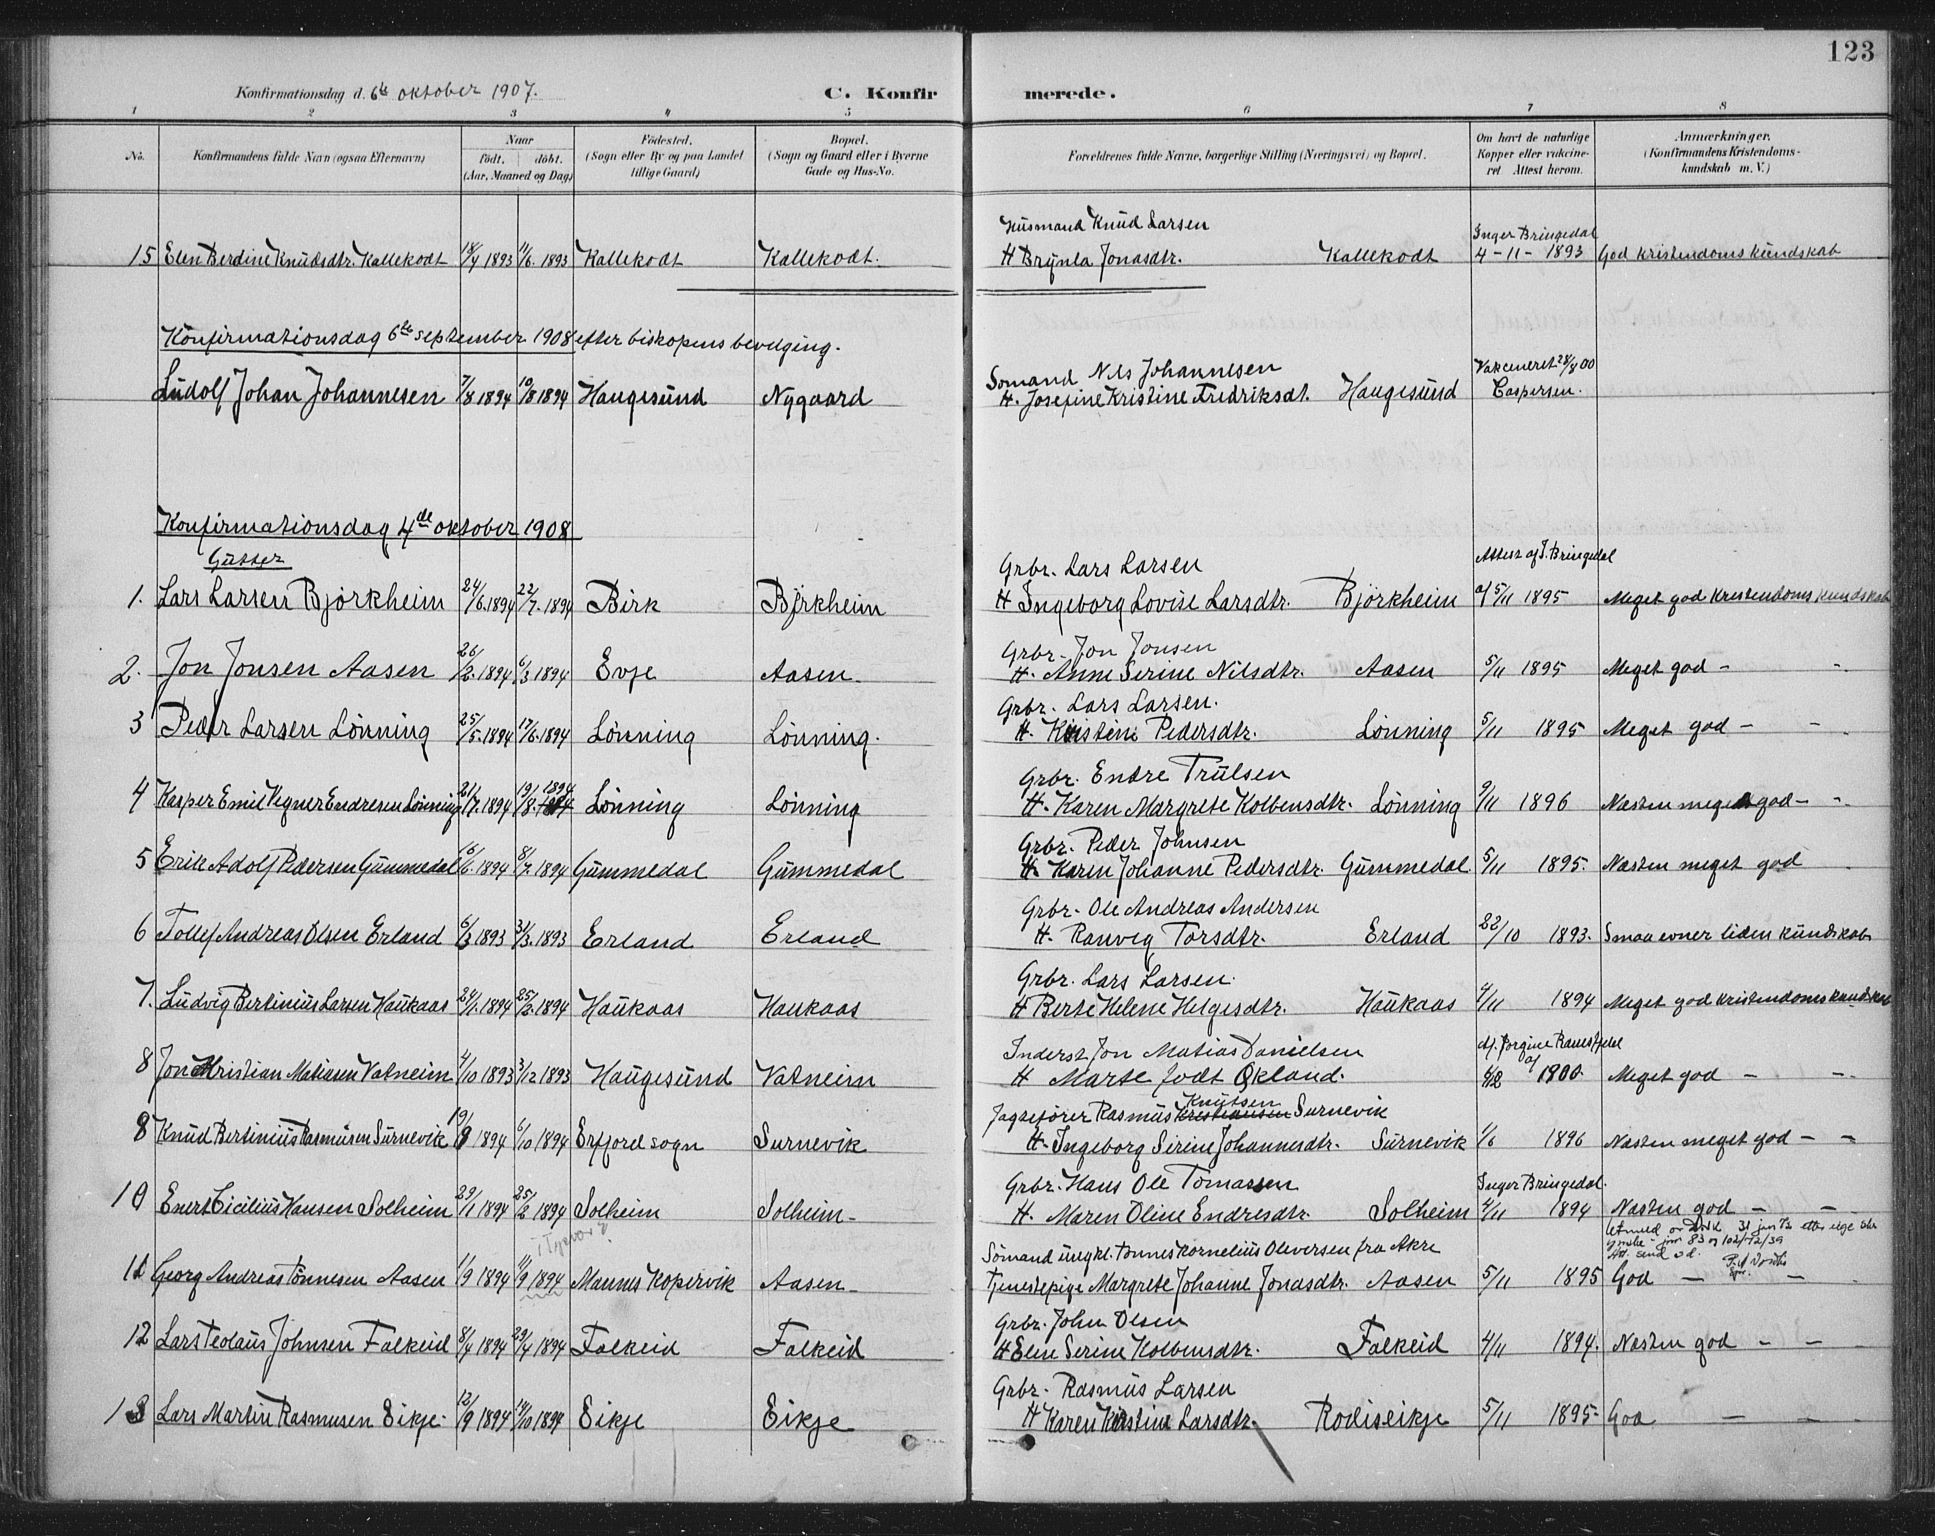 123
Konfirmationsdag d. 6te oktober 1907. C. Konfirmerede.
1 2 3 4 5 6 7 8
No. Konfirmandens fulde Navn (ogsaa Efternavn) Naar födt. döbt. (Aar, Maaned og Dag) Födested. (Sogn eller By og paa Landet tillige Gaard) Bopæl. (Sogn og Gaard eller i Byerne Gade og Hus-No. Forældrenes fulde Navne, borgerlige Stilling (Næringsvei) og Bopæl. Om havt de naturlige Kopper eller vakcineret Attest herom. Anmærkninger. (Konfirmandens Kristendomskundskab m. V.)
Husmand Knud Larsen Inger Bringedal
15 Elen Berdine Knudsdtr. Kallekodt 18/4 1893 11/6. 1893 Kallekodt Kallekodt. H Brynla Jonasdtr. Kallekodt 4-11-1893 God kristendoms kundskab
Konfirmationsdag 6te september 1908 efter biskopens bevilging.
Somand Nils Johannesen Vakcineret 28/8 00
Ludolf Johan Johannesen 7/8 1894 10/8 1894 Haugesund Nygaard H. Josefine Kristine Fredriksdt. Haugesund Caspersen.
Konfirmationsdag 4de oktober 1908
Gutter
Grbr. Lars Larsen Attest af I. Bringedal
1. Lars Larsen Björkheim 24/6. 1894 22/7. 1894 Birk Björkheim H Ingeborg Lovise Larsdtr. Björkheim af 5/11 1895 Meget god kristendoms kundskab
Grbr. Jon Jonsen
2. Jon Jonsen Aasen 26/2. 1894 6/3 1894 Evje Aasen H. Anne Serine Nilsdtr. Aasen 5/11 1895 Meget god - -
Grbr. Lars Larsen.
3 Peder Larsen Lönning 25/5. 1894 17/6. 1894 Lönning Lönning. H. Kristine Pedersdtr. Lönning 5/11 1895 Meget god - -
Grbr. Endre Trulsen
4 Kasper Emil Vegner Endresen Lönning 21/7. 1894 19/8. 1894 Lönning Lönning H. Karen Margrete Kolbensdtr. Lönning 9/11 1896 Næsten meget god - -
Grbr. Peder Johnsen
5 Erik Adolf Pedersen Gummedal 16/6. 1894 8/7. 1894 Gummedal Gummedal H. Karen Johanne Pedersdtr. Gummedal 5/11 1895. Næsten meget god
Grbr. Ole Andreas Andersen
6 Tollef Andreas Olsen Erland 6/3 1893 31/3. 1893 Erland Erland H. Ranveg Torsdtr. Erland 22/10 1893. Smaa evner liden kundskab
Grbr. Lars Larsen.
7. Ludvig Bertinius Larsen Haukaas 24/1. 1894 25/2. 1894 Haukaas Haukaas H Berte Helene Helgesdtr. Haukaas 4/11 1894 Meget god kristendomskundskab
Inderst Jon Matias Danielsen
8 Jon Kristian Matiasen Vatneim 4/10 1893 3/12 1893 Haugesund Vatneim H Marte födt Økland. 1900 Meget god - -
Jagtefører Rasmus Knutsen Surnevik
8 Knud Bertinius Rasmusen Surnevik 19/8 1894 6/10 1894 Erfjord sogn Surnevik H. Ingeborg Serine Johannesdtr. Surnevik 1/6 1896 Næsten meget god - -
Grbr. Hans Ole Tomassen Inger Bringedal.
10 Enert Cicilius Hansen Solheim 29/1 1894 25/2 1894 Solheim Solheim H. Maren Oline Endresdtr Solheim 4/11 1894 Næsten god - -
Sömand ungkl. Tönnes Kornelius Oleversen fra Akre
11 Georg Andreas Tönnesen Aasen 1/9 1894 11/9 1894 Mannes Kopervik Aasen Tjenestepige Margrete Johanne Jonasdtr. Aasen 5/11 1895 God - -
Grbr. John Olsen
12 Lars Teolaus Johnsen Falkeid 8/4 1894 29/4 1894 Falkeid Falkeid H Eline Serine Kolbensdtr. Falkeid 4/11 1894. Næsten god - -
Grbr. Rasmus Larsen
13 Lars Martin Rasmusen Eikje 12/9 1894 14/10 1894 Eikje Eikje H Karen Kirstine Larsdtr. Rodiseikje 5/11 1895 God - -